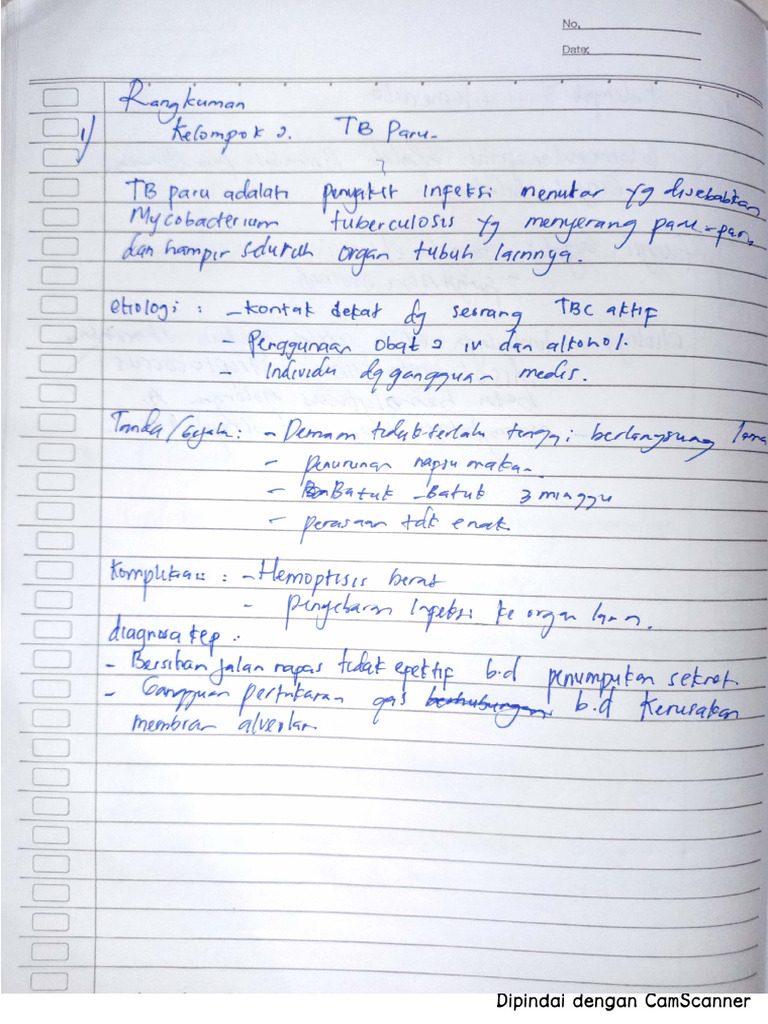 No.
Date:
Rangkuman
1) Kelompok 2. TB Paru.
TB paru adalah penyakit infeksi menular yg disebabkan
Mycobacterium tuberculosis yg menyerang paru-paru,
dan hampir seluruh organ tubuh lainnya.
etiologi : - kontak dekat dg seorang TBC aktif
- Penggunaan Obat2 IV dan alkohol.
- Individu dg gangguan medis.
Tanda/Gejala : - Demam tidak terlalu tinggi berlangsung lama
- penurunan napsu makan.
- Batuk - Batuk 3 minggu
- perasaan tdk enak.
Komplikasi : - Hemoptisis berat
- penyebaran Infeksi ke organ lain.
diagnosa kep :
- Bersihan jalan napas tidak efektif b.d penumpukan sekret.
- Gangguan pertukaran gas berhubungan b.d Kerusakan
membran alveolar.
Dipindai dengan CamScanner